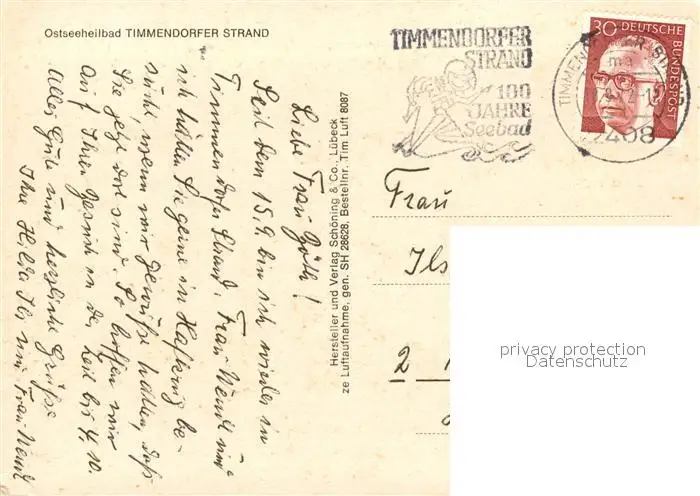 Ostseeheilbad TIMMENDORFER STRAND
Liebe Frau Göth!
Seit dem 15.9. bin ich wieder in
Timmendorfer Strand. Frau Wendt und
ich hätten Sie gerne in Haffkrug be-
sucht wenn wir gewußt hätten, daß
Sie jetzt dort sind. So hoffen wir
auf Ihren Besuch in der Zeit bis 4.10.
Alles Gute und herzliche Grüße
Ihre Hilde Ils und Frau Wendt
Hersteller und Verlag Schöning & Co., Lübeck
ze Luftaufnahme, gen. SH 28628, Bestellnr. Tim Luft 8087
TIMMENDORFER
STRAND
100
JAHRE
Seebad
30 DEUTSCHE
BUNDESPOST
TIMMEN
2408
Frau
Ils
2
privacy protection
Datenschutz